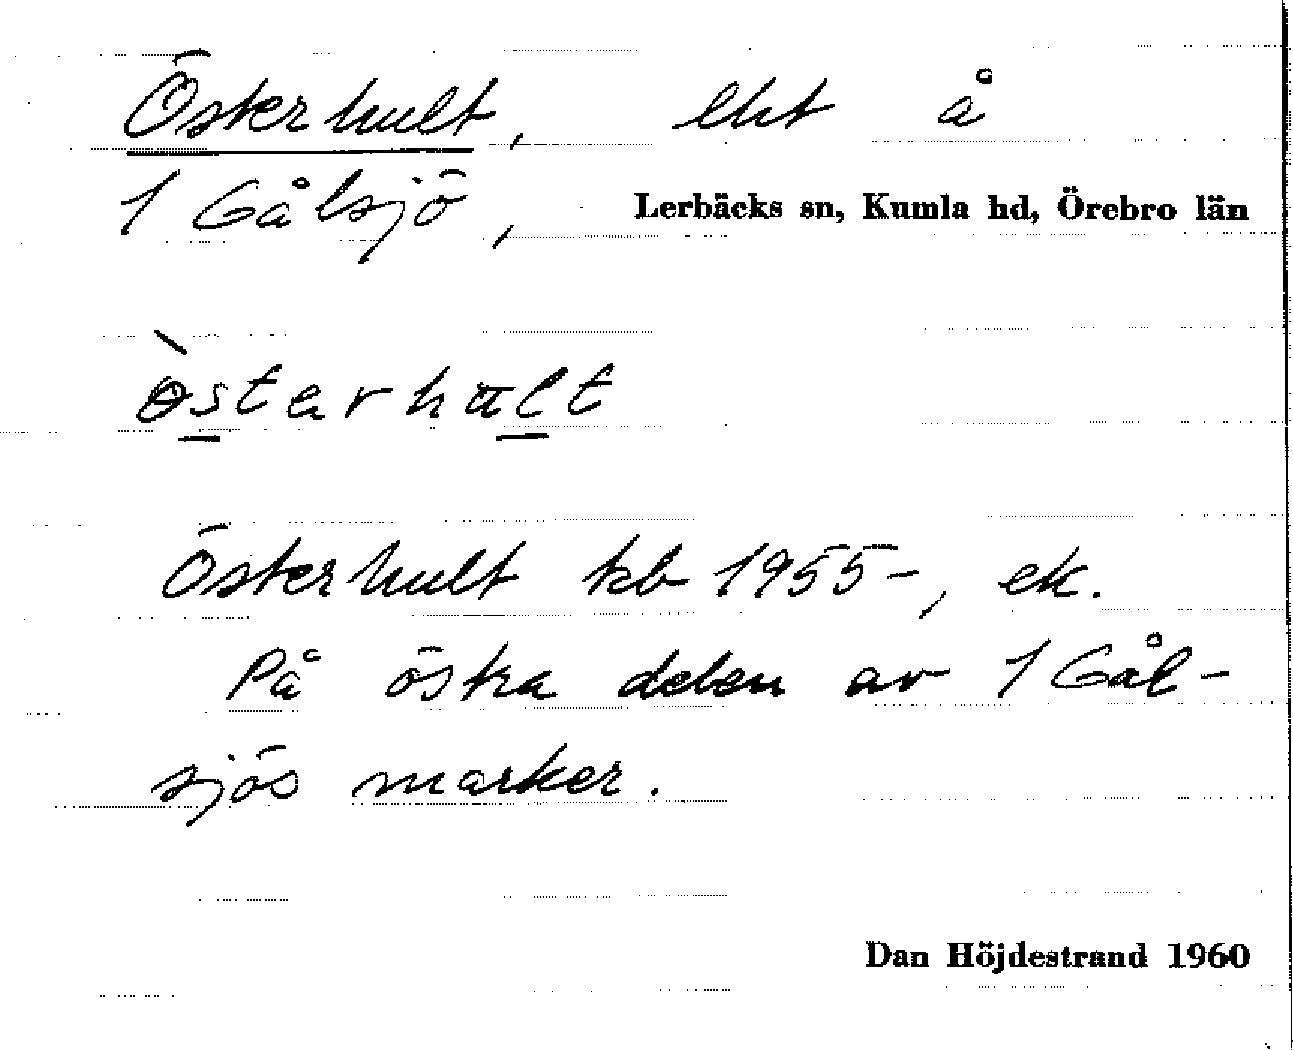 Österhult, lht å
1 Gålsjö, Lerbäcks sn, Kumla hd, Örebro län
ɵ̀starhult
Österhult kb 1955-, ek.
På östra delen av 1 Gål-
sjös marker.
Dan Höjdestrand 1960